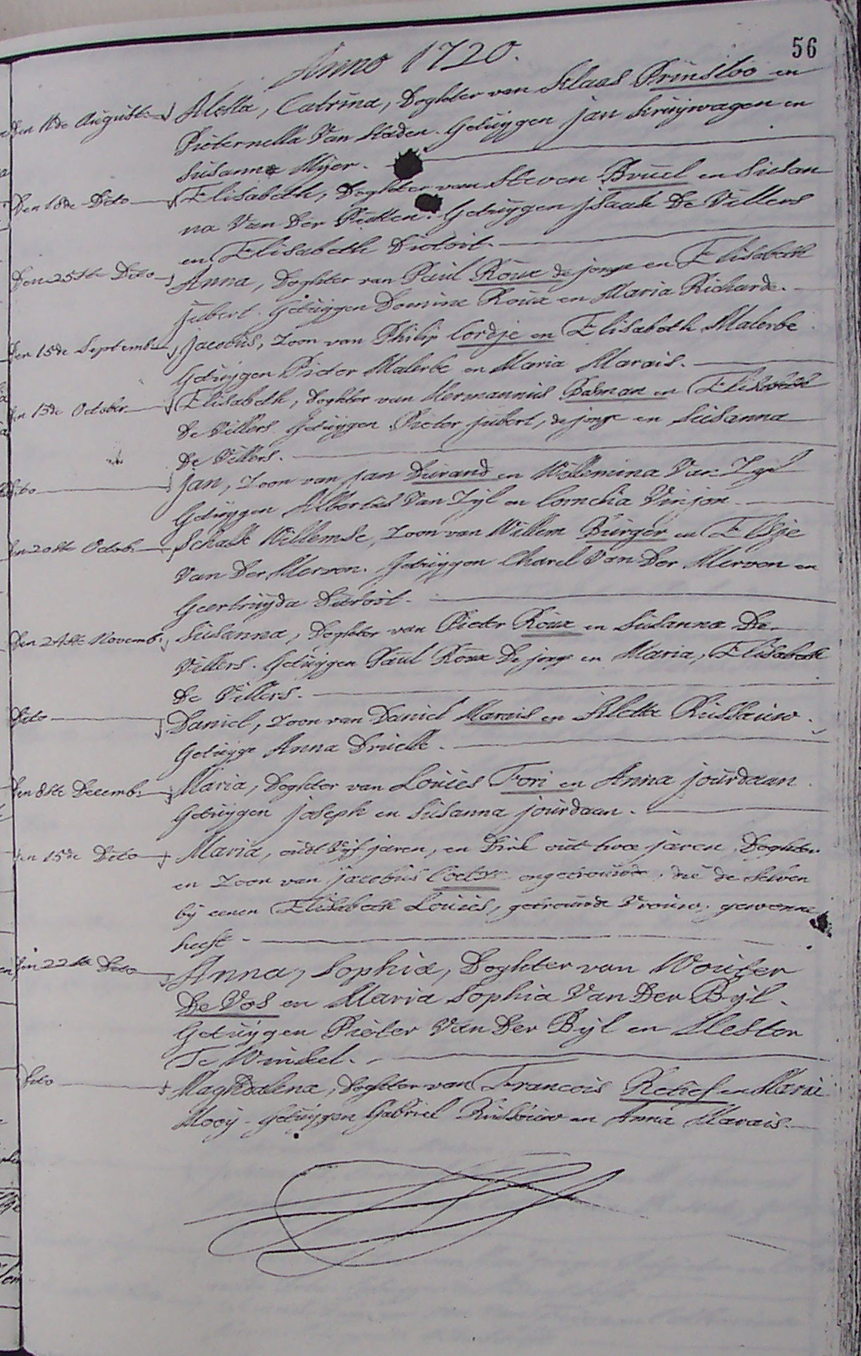 56
Anno 1720.
Den 11de August. Aletta, Catrina, Doghter van Klaas Prinsloo en
Pieternella Van Staden. Getuygen Jan Kruywagen en
Susanna Mijer.
Den 18de Dito Elisabeth, Doghter van Steven Bruel en Susan
na Van Der Getuygen Jsaak De Villers
en Elisabeth Dutoit.
Den 25ste Dito Anna, Doghter van Paul Roux de jonge en Elisabeth
Jubert. Getuygen Domine Roux en Maria Richarde.
Den 15de September Jacobus, Zoon van Philip Cordje en Elisabeth Malerbe
Getuygen Pieter Malerbe en Maria Marais.
13de October Elisabeth, Doghter van Hermannius Bosman en Elisabeth
De Villers. Getuygen Pieter Jubert, de jonge en Susanna
De Villers.
Dito Jan, Zoon van Jan Durand en Willemina Van Zyl
Getuygen Albertus Van Zijl en Cornelia
20ste Octob. Schalk Willemse, Zoon van Willem Burger en Elsje
Van Der Merven. Getuygen Charel Van Der Merven en
Geertruyda Dutoit.
Den 24ste Novemb. Susanna, Doghter van Pieter Roux en Susanna De
Villers. Getuygen Paul Roux De jonge en Maria, Elisabeth
De Villers.
Dito Daniel, Zoon van Daniel Marais en Aletta Russouw.
Getuyge Anna Druelle.
Den 8ste Decemb. Maria, Doghter van Louies Fori en Anna Jourdaan
Getuygen Joseph en Susanna Jourdaan.
15de Dito Maria, oudt vijf jaren, en Dirk out twee jaren, Doghter
en Zoon van Jacobus Coetse ongetrouwt, die de selven
bij eenen Elisabeth Louies, getrouwde Vrouw, gewonne
heeft
22ste Dito Anna, Sophia, Doghter van Wouter
De Vos en Maria Sophia Van Der Bijl.
Getuygen Pieter Van Der Bijl en Hester
Te Winkel.
Dito Maghdalena, Doghter van Francois Retief en Marie
Mooy. Getuygen Gabriel Russouw en Anna Marais.